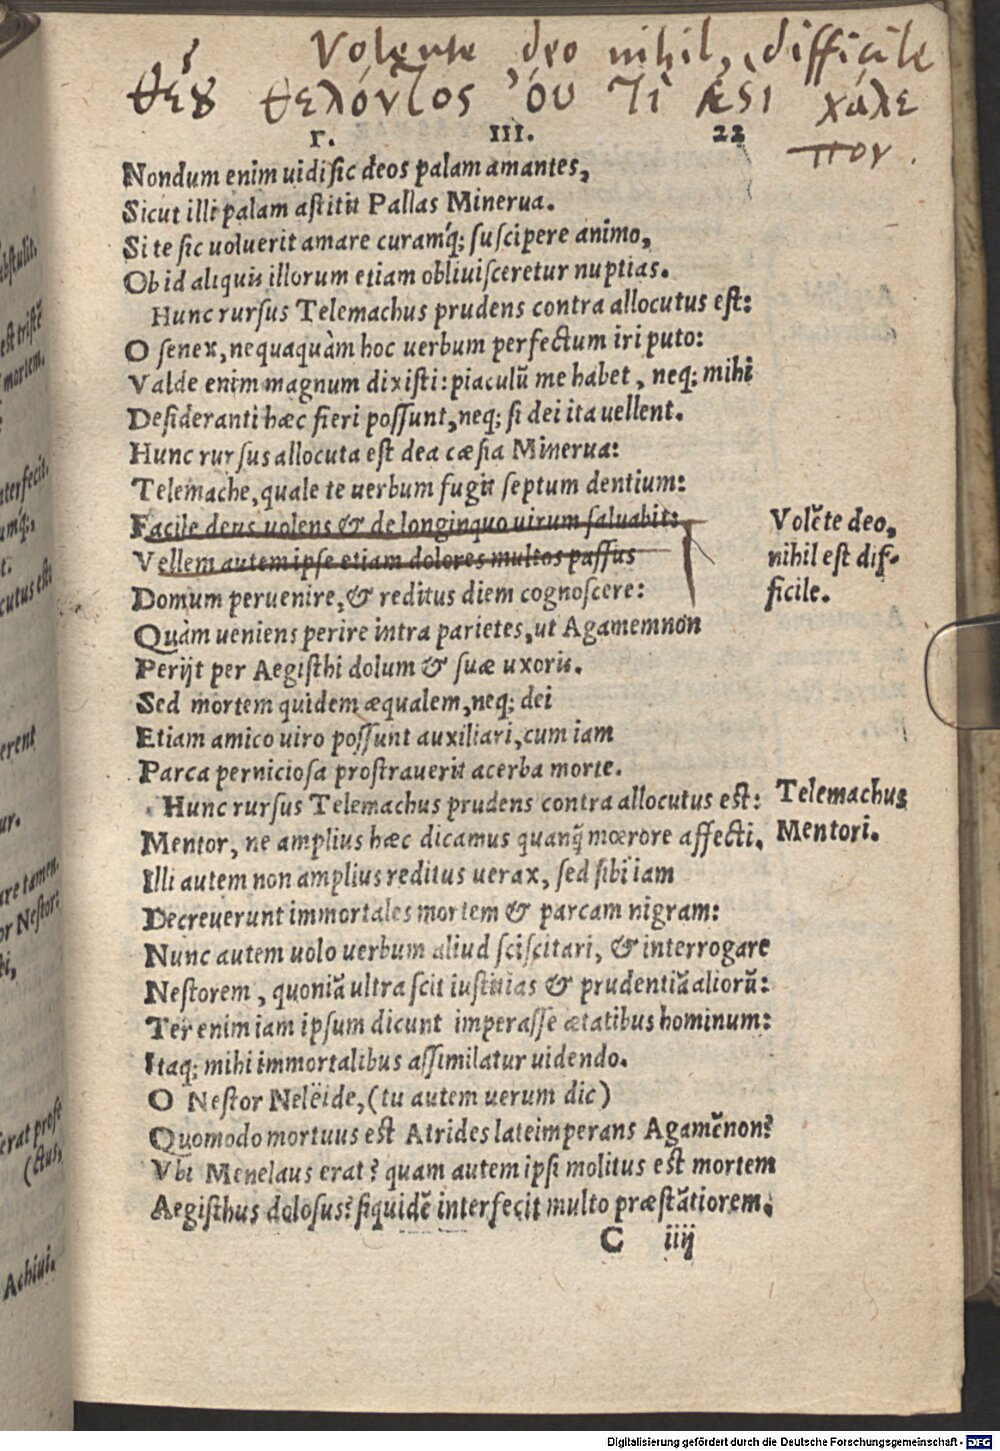 Volente deo nihil, difficile
θεȣ θελόντος ὀυ τι ἐστι χάλε
πον.
Γ. III. 22
Nondum enim uidi sic deos palam amantes,
Sicut illi palam astitit Pallas Minerua.
Si te sic uoluerit amare curamq́; suscipere animo,
Ob id aliquis illorum etiam obliuisceretur nuptias.
Hunc rursus Telemachus prudens contra allocutus est:
O senex, nequaquàm hoc uerbum perfectum iri puto:
Valde enim magnum dixisti: piaculũ me habet, neq; mihi
Desideranti hæc fieri possunt, neq; si dei ita uellent.
Hunc rursus allocuta est dea cæsia Minerua:
Telemache, quale te uerbum fugit septum dentium:
Facile deus uolens & de longinquo uirum saluabit:
Vellem autem ipse etiam dolores multos passus
Volẽte deo,
nihil est dif-
ficile.
Domum peruenire, & reditus diem cognoscere:
Quàm ueniens perire intra parietes, ut Agamemnon
Perijt per Aegisthi dolum & suæ uxoris.
Sed mortem quidem æqualem, neq; dei
Etiam amico uiro possunt auxiliari, cum iam
Parca perniciosa prostrauerit acerba morte.
Hunc rursus Telemachus prudens contra allocutus est:
Telemachus
Mentori.
Mentor, ne amplius hæc dicamus quanq̃ mœrore affecti.
Illi autem non amplius reditus uerax, sed sibi iam
Decreuerunt immortales mortem & parcam nigram:
Nunc autem uolo uerbum aliud sciscitari, & interrogare
Nestorem, quoniã ultra scit iustitias & prudentiã aliorũ:
Ter enim iam ipsum dicunt imperasse ætatibus hominum:
Itaq; mihi immortalibus assimilatur uidendo.
O Nestor Neleïde, (tu autem uerum dic)
Quomodo mortuus est Atrides late imperans Agamẽnon?
Vbi Menelaus erat? quam autem ipsi molitus est mortem
Aegisthus dolosus? siquidẽ interfecit multo præstãtiorem.
C iiij
bstulit.
est tristẽ
mortem.
nterfecit.
umq́;,
t.
cutus est:
erent
ur.
are tamen.
or Nestor:
ti,
erat prose
(ctus,
Achiui.
Digitalisierung gefördert durch die Deutsche Forschungsgemeinschaft - DFG